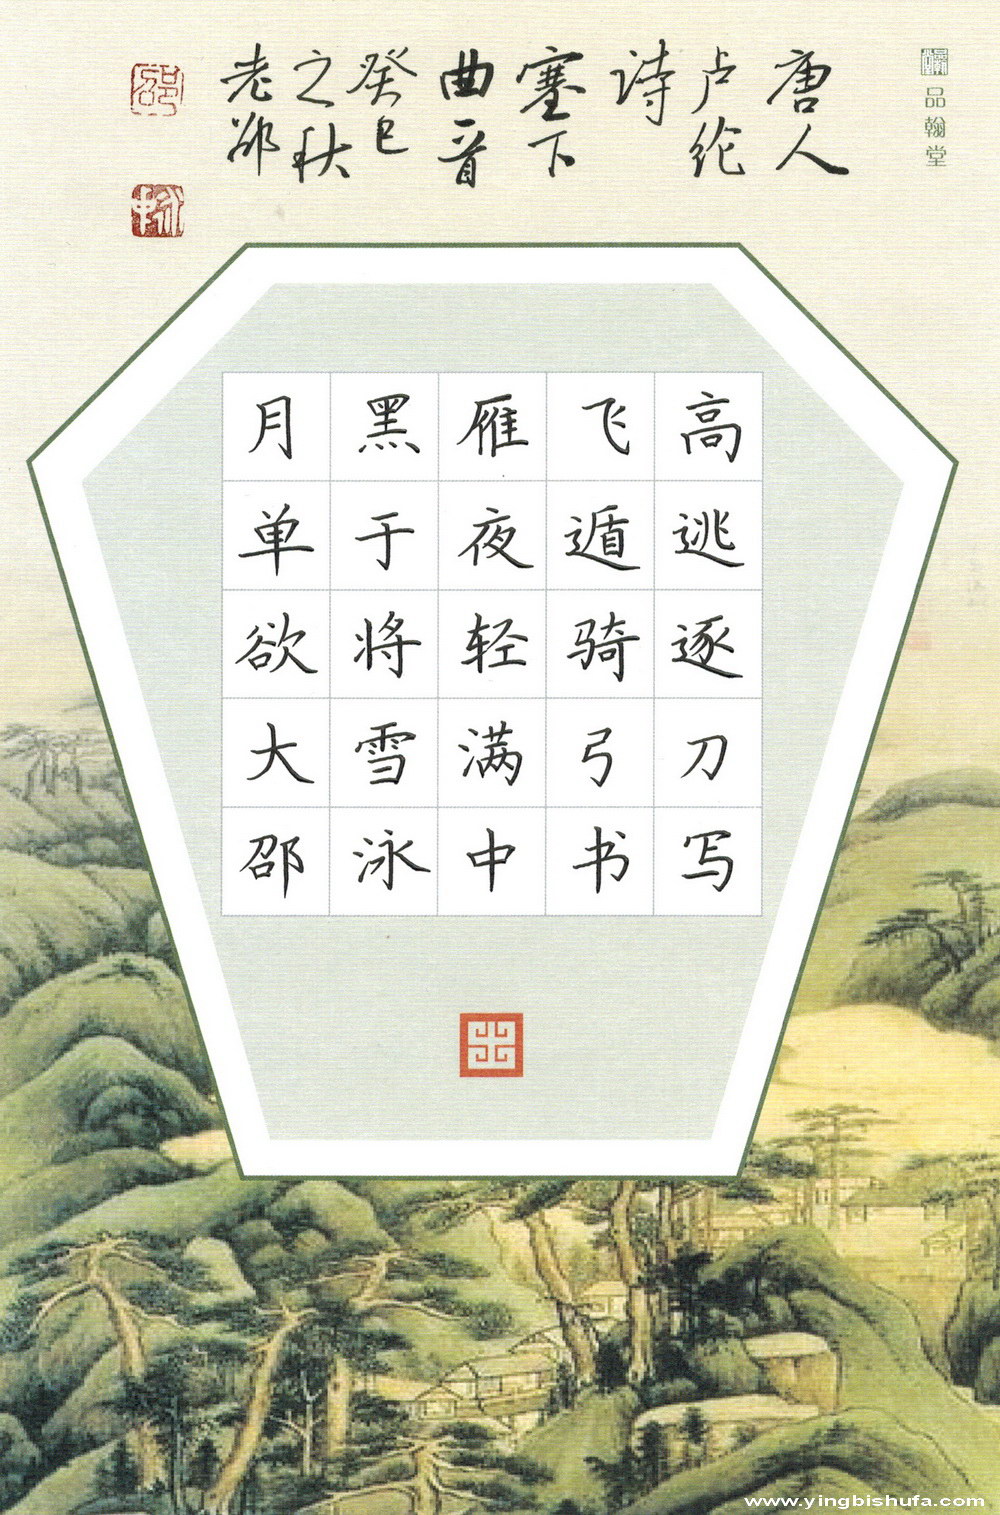 唐人
卢纶
诗
塞下
曲一首
癸巳
之秋
老邵
邵
泳中
品翰堂
月黑雁飞高
单于夜遁逃
欲将轻骑逐
大雪满弓刀
邵泳中书写
www.yingbishufa.com